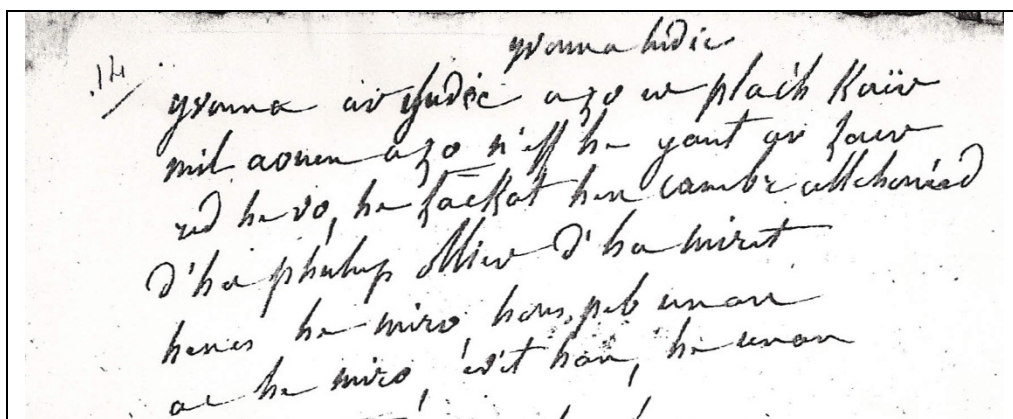 yvonna ludic
14/ yvonna ar yudéc a zo ur plac'h Kaër
mil aouen a zo n'eff he gant ar Laer
red he vo, he Lackat hen cambr allchouéad
d'ha philup ollier d'ha miret
henes he miro, hous peb unan
ac he miro, évit han, he unan